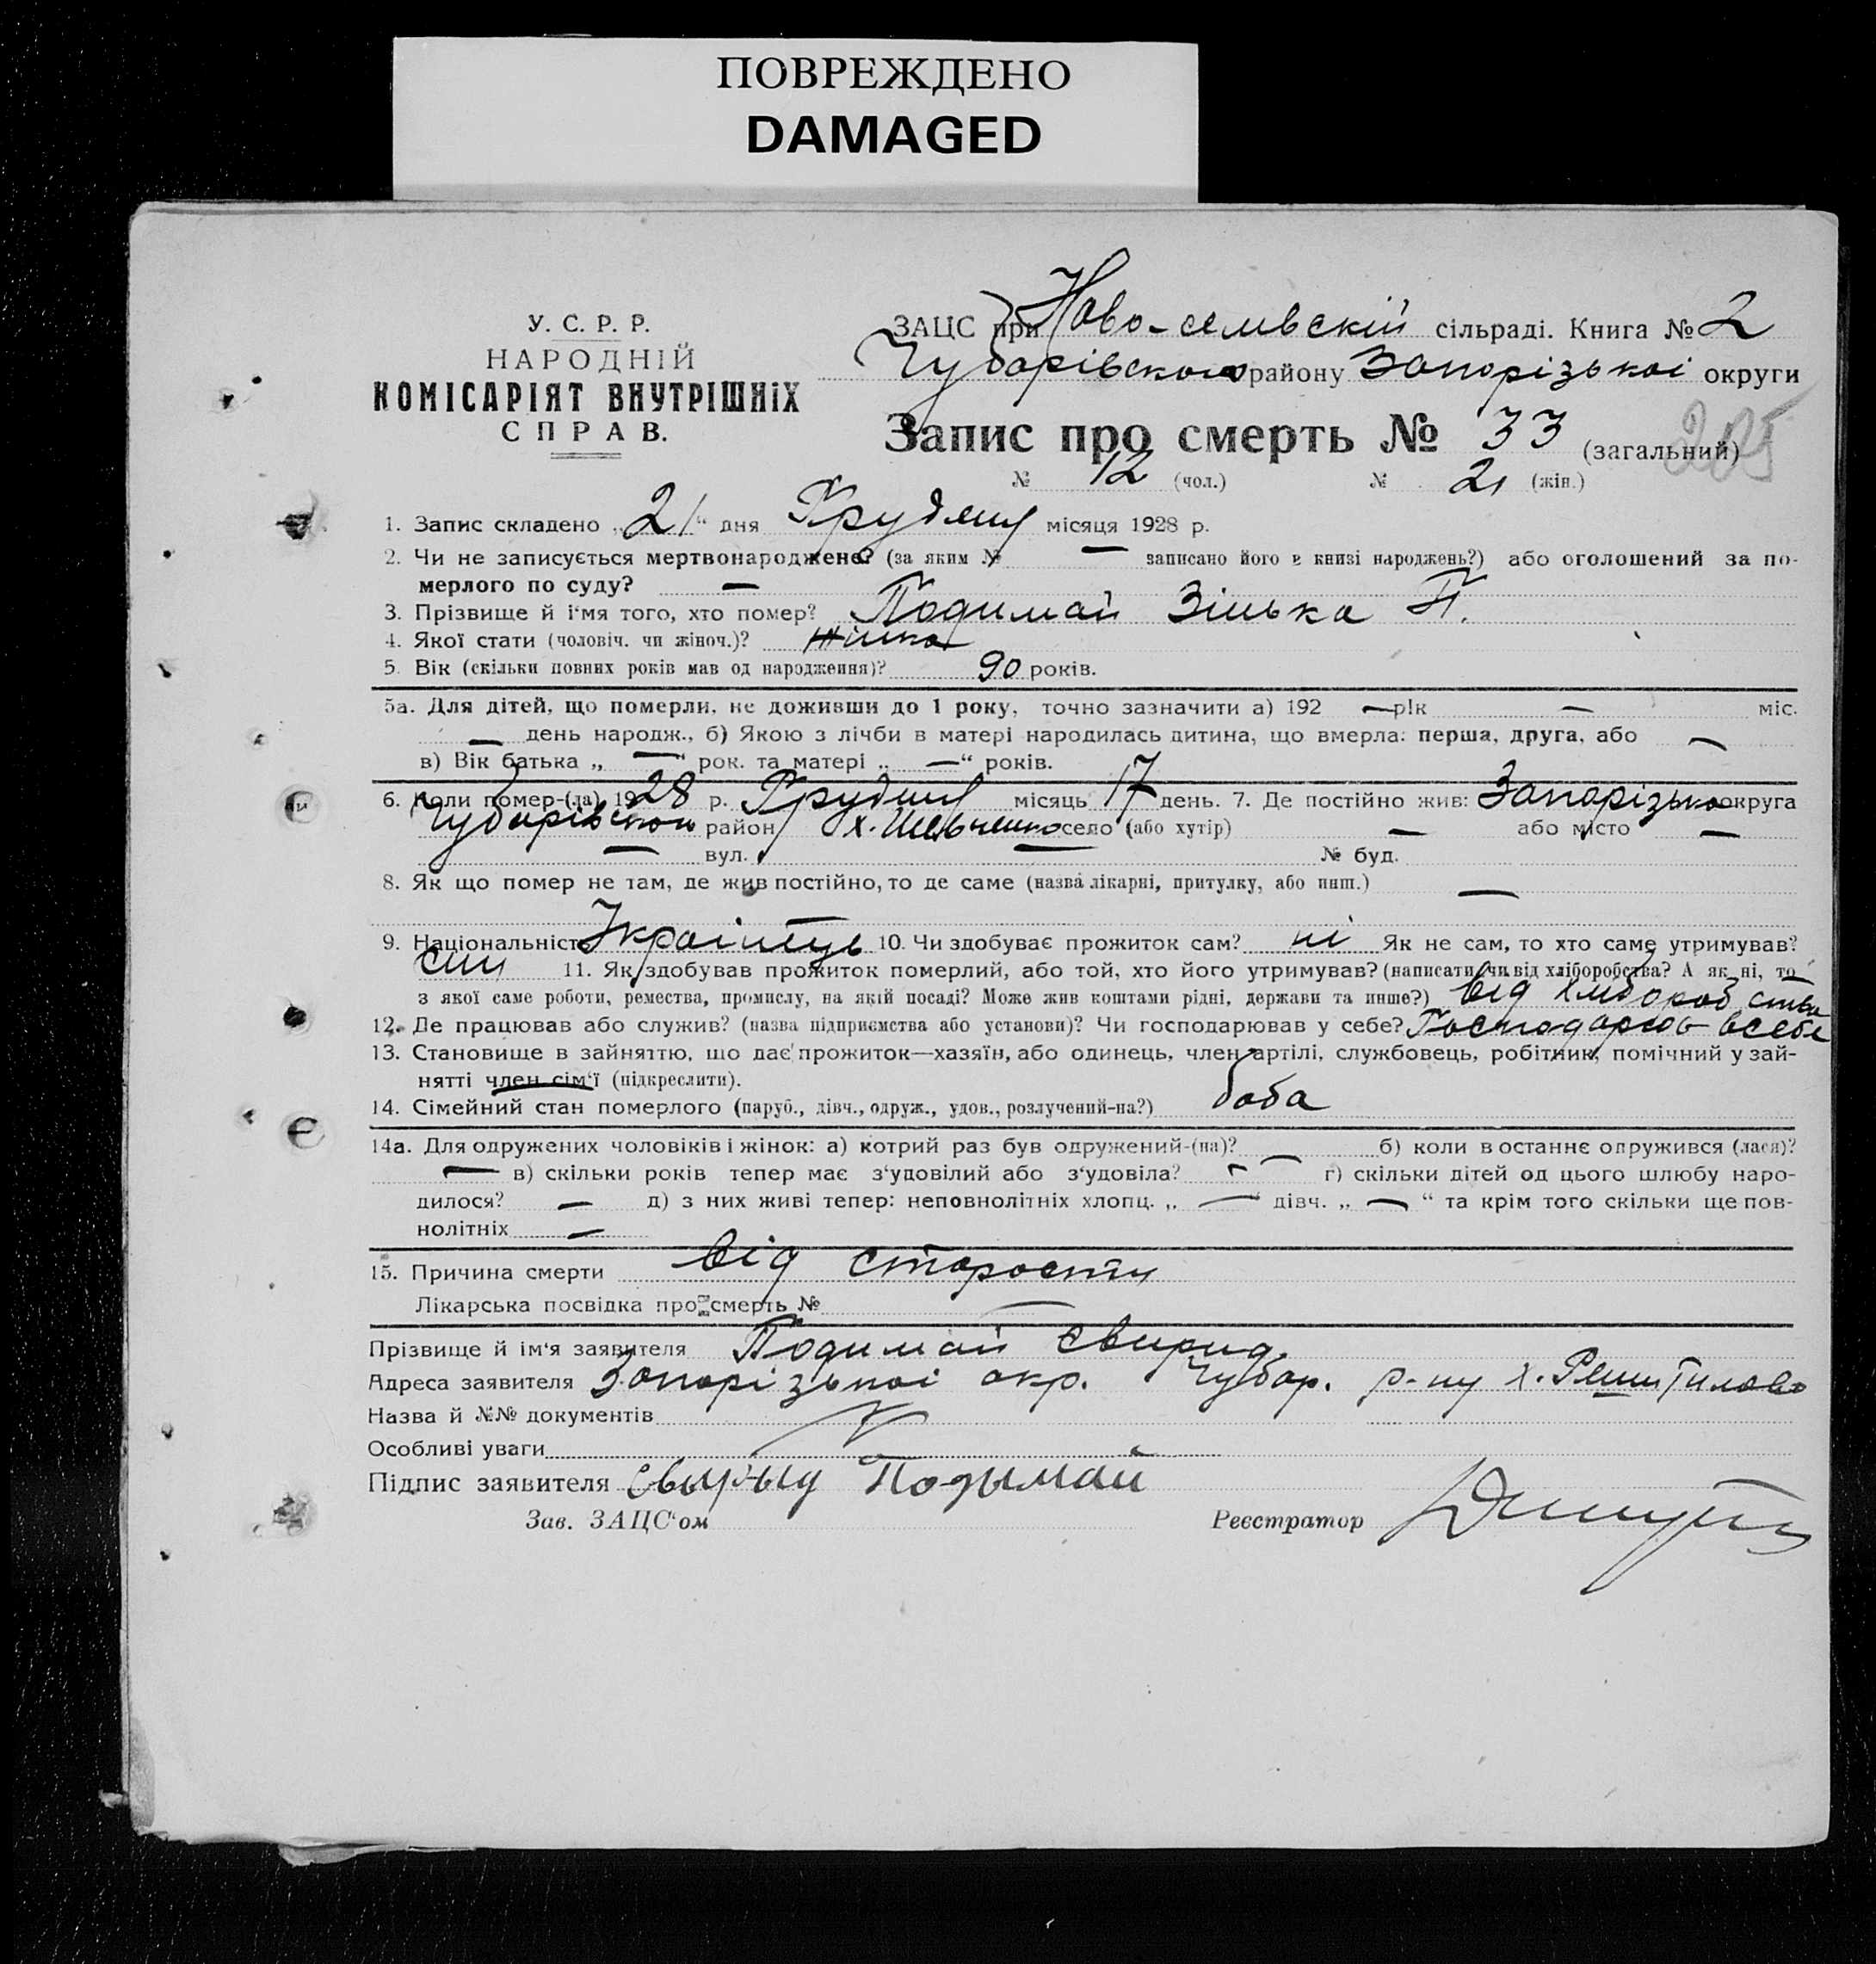 ПОВРЕЖДЕНО
DAMAGED
У. С. Р. Р.
НАРОДНІЙ
КОМІСАРІЯТ ВНУТРІШНІХ
СПРАВ.
ЗАЦС при Ново-селивскій сільраді. Книга № 2
Чубарівского району Запорізькоі округи
Запис про смерть № 33 (загальний)
205
№ 12 (чол.) № 21 (жін.)
1. Запис складено „21“ дня Грудния місяця 1928 р.
2. Чи не записується мертвонароджене? (за яким № — записано його в книзі народжень?) або оголошений за по-
мерлого по суду? —
3. Прізвище й ім'я того, хто помер? Подимай Зінька П.
4. Якої стати (чоловіч. чи жіноч.)? жінка
5. Вік (скільки повних років мав од народження)? 90 років.
5а. Для дітей, що померли, не доживши до 1 року, точно зазначити а) 192 — рік — міс.
— день народж., б) Якою з лічби в матері народилась дитина, що вмерла: перша, друга, або —
в) Вік батька „ — “ рок. та матері „ — “ років.
6. Коли помер-(ла) 1928 р. Грудния місяць 17 день. 7. Де постійно жив: Запорізько округа
Чубарівскои район х. Шевченко село (або хутір) — або місто —
— вул. — № буд.
8. Як що помер не там, де жив постійно, то де саме (назва лікарні, притулку, або инш.) —
9. Національність Украінець 10. Чи здобуває прожиток сам? ні Як не сам, то хто саме утримував?
син 11. Як здобував прожиток померлий, або той, хто його утримував? (написати чи від хліборобства? А як ні, то
з якої саме роботи, ремества, промислу, на якій посаді? Може жив коштами рідні, держави та инше?) від хлиборобства
12. Де працював або служив? (назва підприємства або установи)? Чи господарював у себе? Господарюв всебе
13. Становище в зайняттю, що дає прожиток—хазяїн, або одинець, член артілі, службовець, робітник, помічний у зай-
нятті член сім'ї (підкреслити).
14. Сімейний стан померлого (паруб., дівч., одруж., удов., розлучений-на?) баба
14а. Для одружених чоловіків і жінок: а) котрий раз був одружений-(на)? — б) коли в останнє одружився (лася)?
— в) скільки років тепер має з'удовілий або з'удовіла? — г) скільки дітей од цього шлюбу наро-
дилося? — д) з них живі тепер: неповнолітніх хлопц. „ — “ дівч. „ — “ та крім того скільки ще пов-
нолітніх —
15. Причина смерти від старости
Лікарська посвідка про смерть № —
Прізвище й ім'я заявителя Подимай Свирид
Адреса заявителя Запорізькоі окр. Чубар. р-ну х. Решитилово
Назва й №№ документів
Особливі уваги
Підпис заявителя Свырыд Подымай
Зав. ЗАЦС'ом Реєстратор